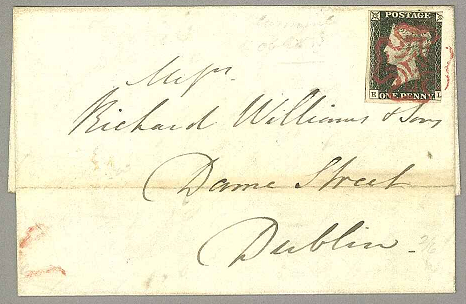 POSTAGE
E L
ONE PENNY
Messrs
Richard Williams & Sons
Dame Street
Dublin.